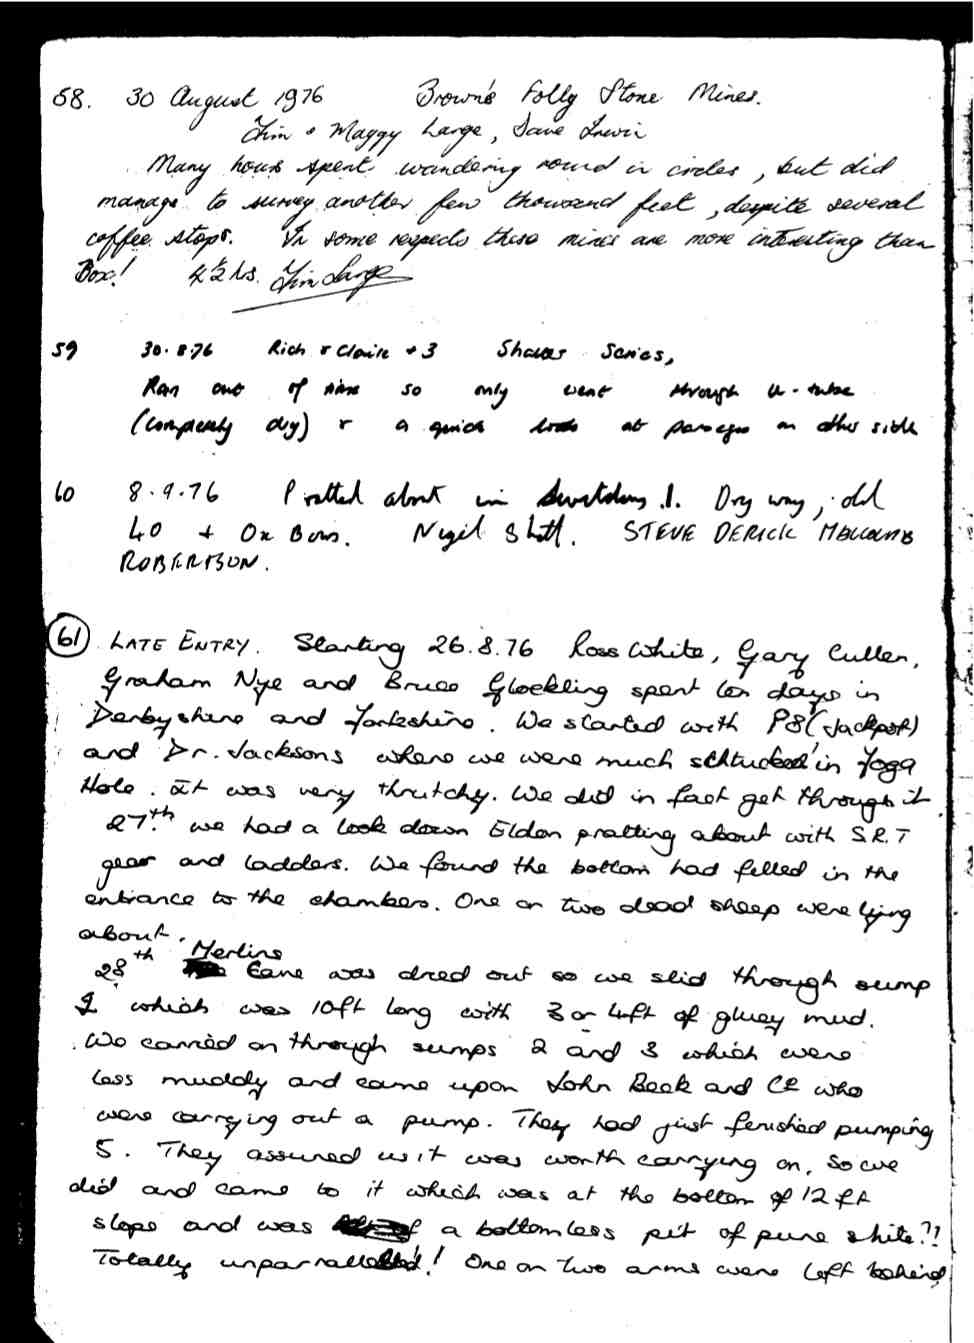 58. 30 August 1976 Brown's Folly Stone Mines.
Tim & Maggy Large, Dave Irwin
Many hours spent wandering round in circles, but did
manage to survey another few thousand feet, despite several
coffee stops. In some respects these mines are more interesting than
Box! 4½ hrs. Tim Large
59 30.8.76 Rich & Claire + 3 Shower Series,
Ran out of time so only went through U-tube
(completely dry) & a quick look at passages on other side
60 8.9.76 Pratted about in Swildons 1. Dry way, old
40 + Ox Bows. Nigel STEVE DERICK
ROBERTSON.
61 LATE ENTRY. Starting 26.8.76 Ross White, Gary Cullen,
Graham Nye and Bruce Glockling spent ten days in
Derbyshire and Yorkshire. We started with P8 (Jackpot)
and Dr. Jacksons where we were much schtucked in Yoga
Hole. It was very thrutchy. We did in fact get through it
27th. we had a look down Eldon pratting about with S.R.T
gear and ladders. We found the bottom had filled in the
entrance to the chambers. One or two dead sheep were lying
about.
28th Merlins Cave was dried out so we slid through sump
1 which was 10ft long with 3 or 4ft of gluey mud.
We carried on through sumps 2 and 3 which were
less muddy and came upon John Beck and Co who
were carrying out a pump. They had just finished pumping
5. They assured us it was worth carrying on, so we
did and came to it which was at the bottom of 12 ft
slope and was a bottomless pit of pure shite?!!
Totally unparralleled! One or two arms were left behind